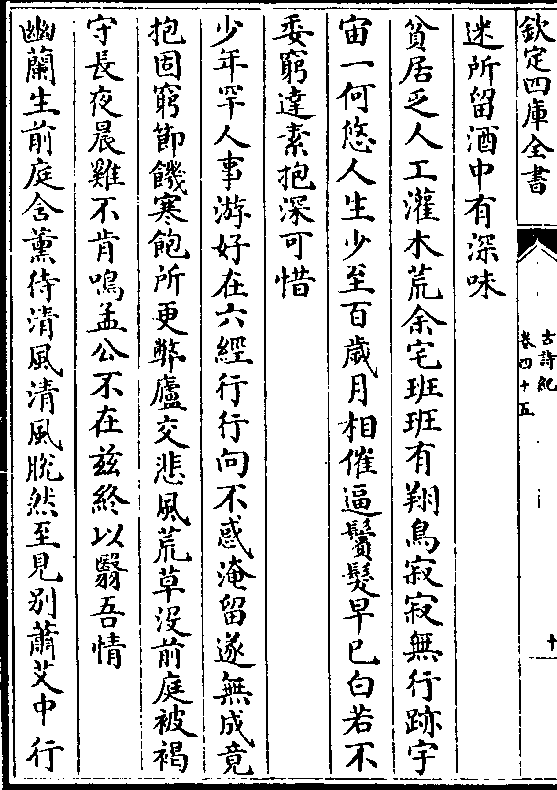 欽定四庫全書
古詩紀
卷四十五
十
迷所留酒中有深味
貧居乏人工灌木荒余宅班班有翔鳥寂寂無行跡宇
宙一何悠人生少至百歲月相催逼鬢髮早已白若不
委窮達素抱深可惜
少年罕人事游好在六經行行向不惑淹留遂無成竟
抱固窮節饑寒飽所更弊廬交悲風荒草沒前庭被褐
守長夜晨雞不肯鳴孟公不在兹終以翳吾情
幽蘭生前庭含薰待清風清風脫然至見别蕭艾中行